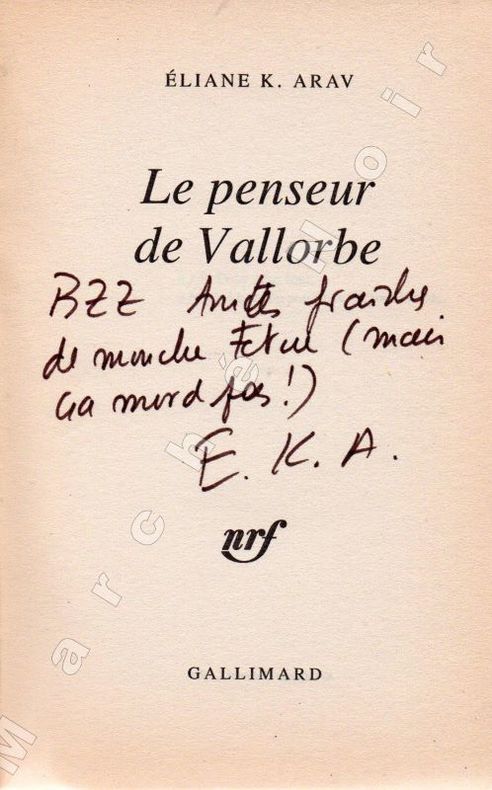 ÉLIANE K. ARAV
Le penseur
de Vallorbe
BZZ Amitiés fraîches
de mouche Têtue (mais
ça mord pas!)
E. K. A.
nrf
GALLIMARD
Marché Noir